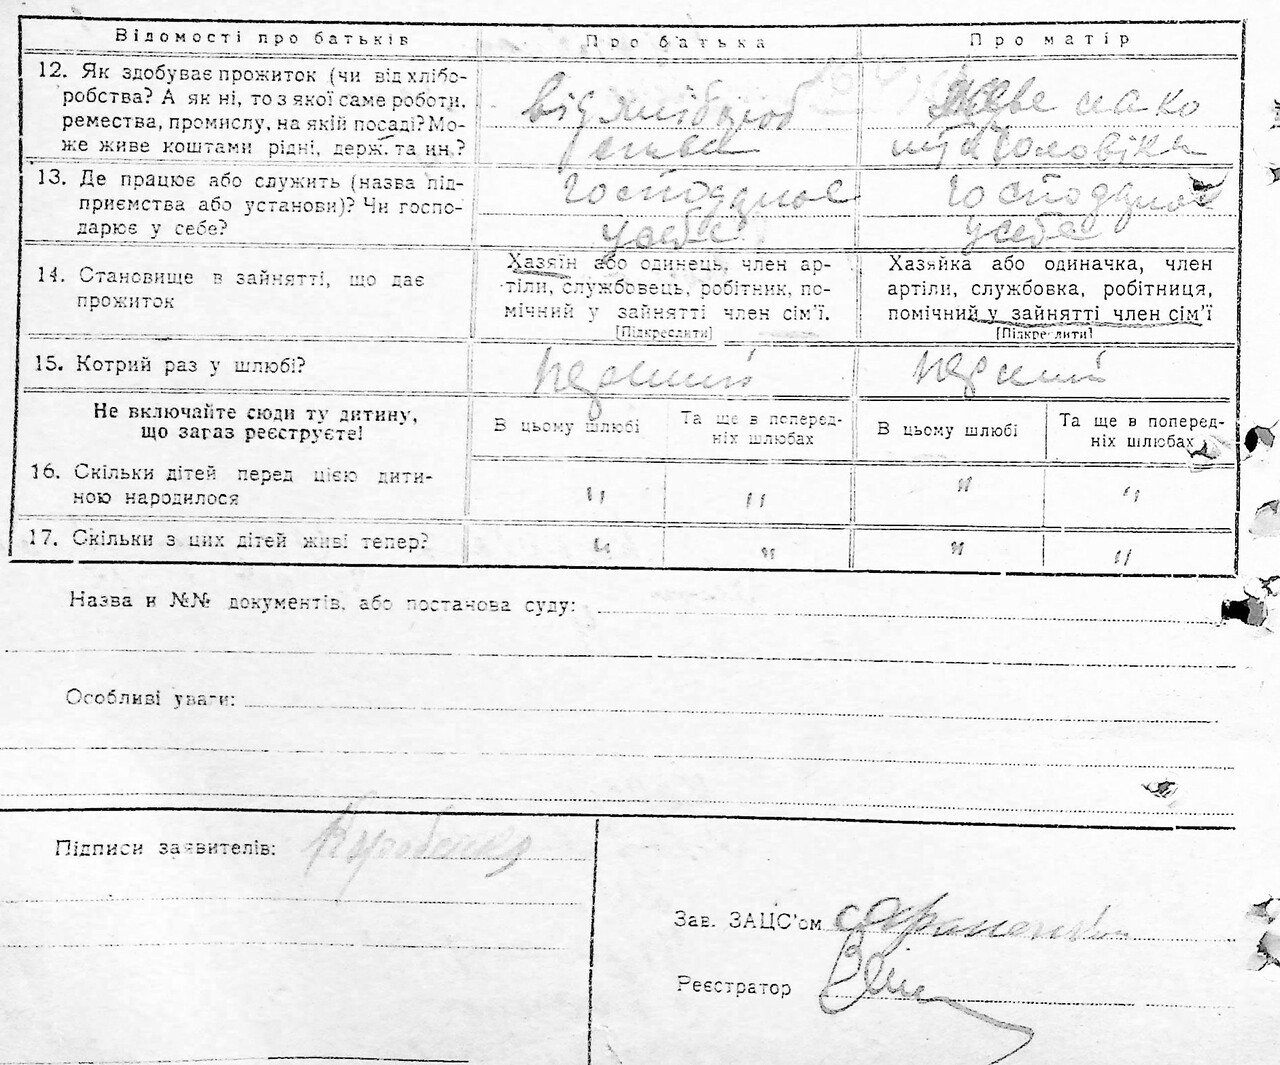 Відомості про батьків
Про батька
Про матір
12. Як здобуває прожиток (чи від хлібо-
робства? А як ні, то з якої саме роботи,
ремества, промислу, на якій посаді? Мо-
же живе коштами рідні, держ. та ин.?
від хлібороб
живе на ко
шта чоловіка
13. Де працює або служить (назва під-
приємства або установи)? Чи госпо-
дарює у себе?
господарює
у себе
господарює
у себе
14. Становище в зайнятті, що дає
прожиток
Хазяїн або одинець, член ар-
тіли, службовець, робітник, по-
мічний у зайнятті член сім'ї.
[Підкреслити]
Хазяйка або одиначка, член
артіли, службовка, робітниця,
помічний у зайнятті член сім'ї
[Підкреслити]
15. Котрий раз у шлюбі?
перший
перший
Не включайте сюди ту дитину,
що зараз реєструєте!
В цьому шлюбі
Та ще в поперед-
ніх шлюбах
В цьому шлюбі
Та ще в поперед-
ніх шлюбах
16. Скільки дітей перед цією дити-
ною народилося
" " " "
17. Скільки з цих дітей живі тепер?
" " " "
Назва и №№ документів, або постанова суду:
Особливі уваги:
Підписи заявителів:
Зав. ЗАЦС'ом
Реєстратор